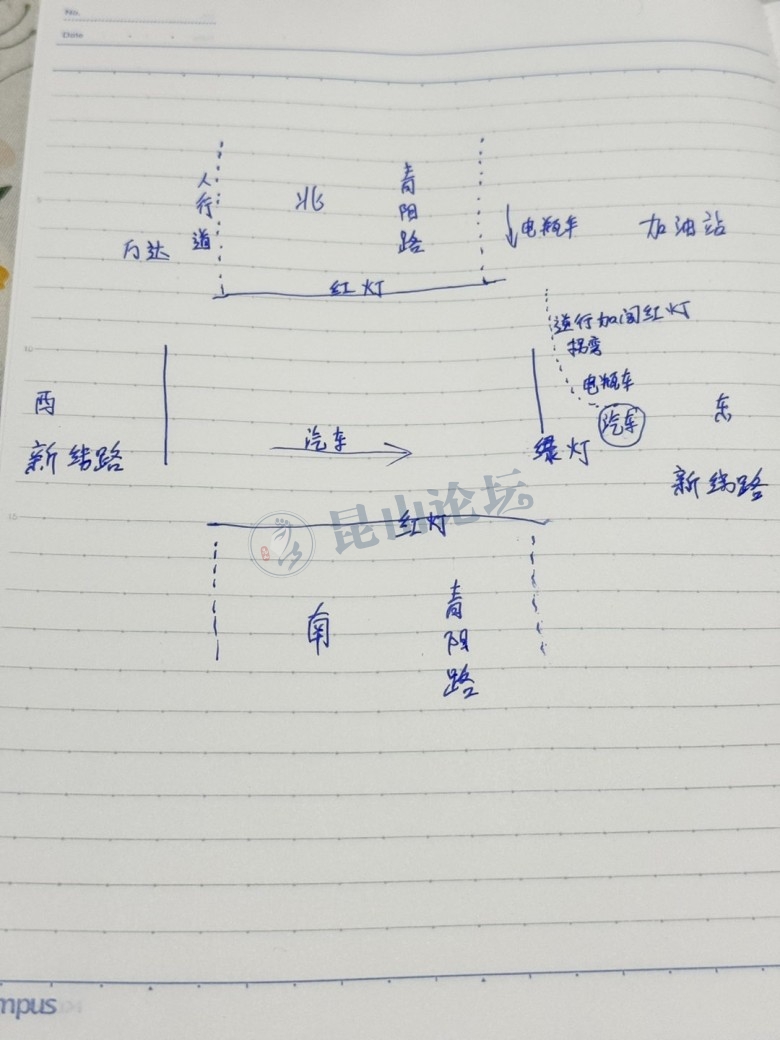 No.
Date
人行道
北
青阳路
电瓶车
加油站
万达
红灯
逆行加闯红灯
拐弯
电瓶车
汽车
西
新纬路
汽车
绿灯
东
新纬路
昆山论坛
红灯
南
青阳路
mpus